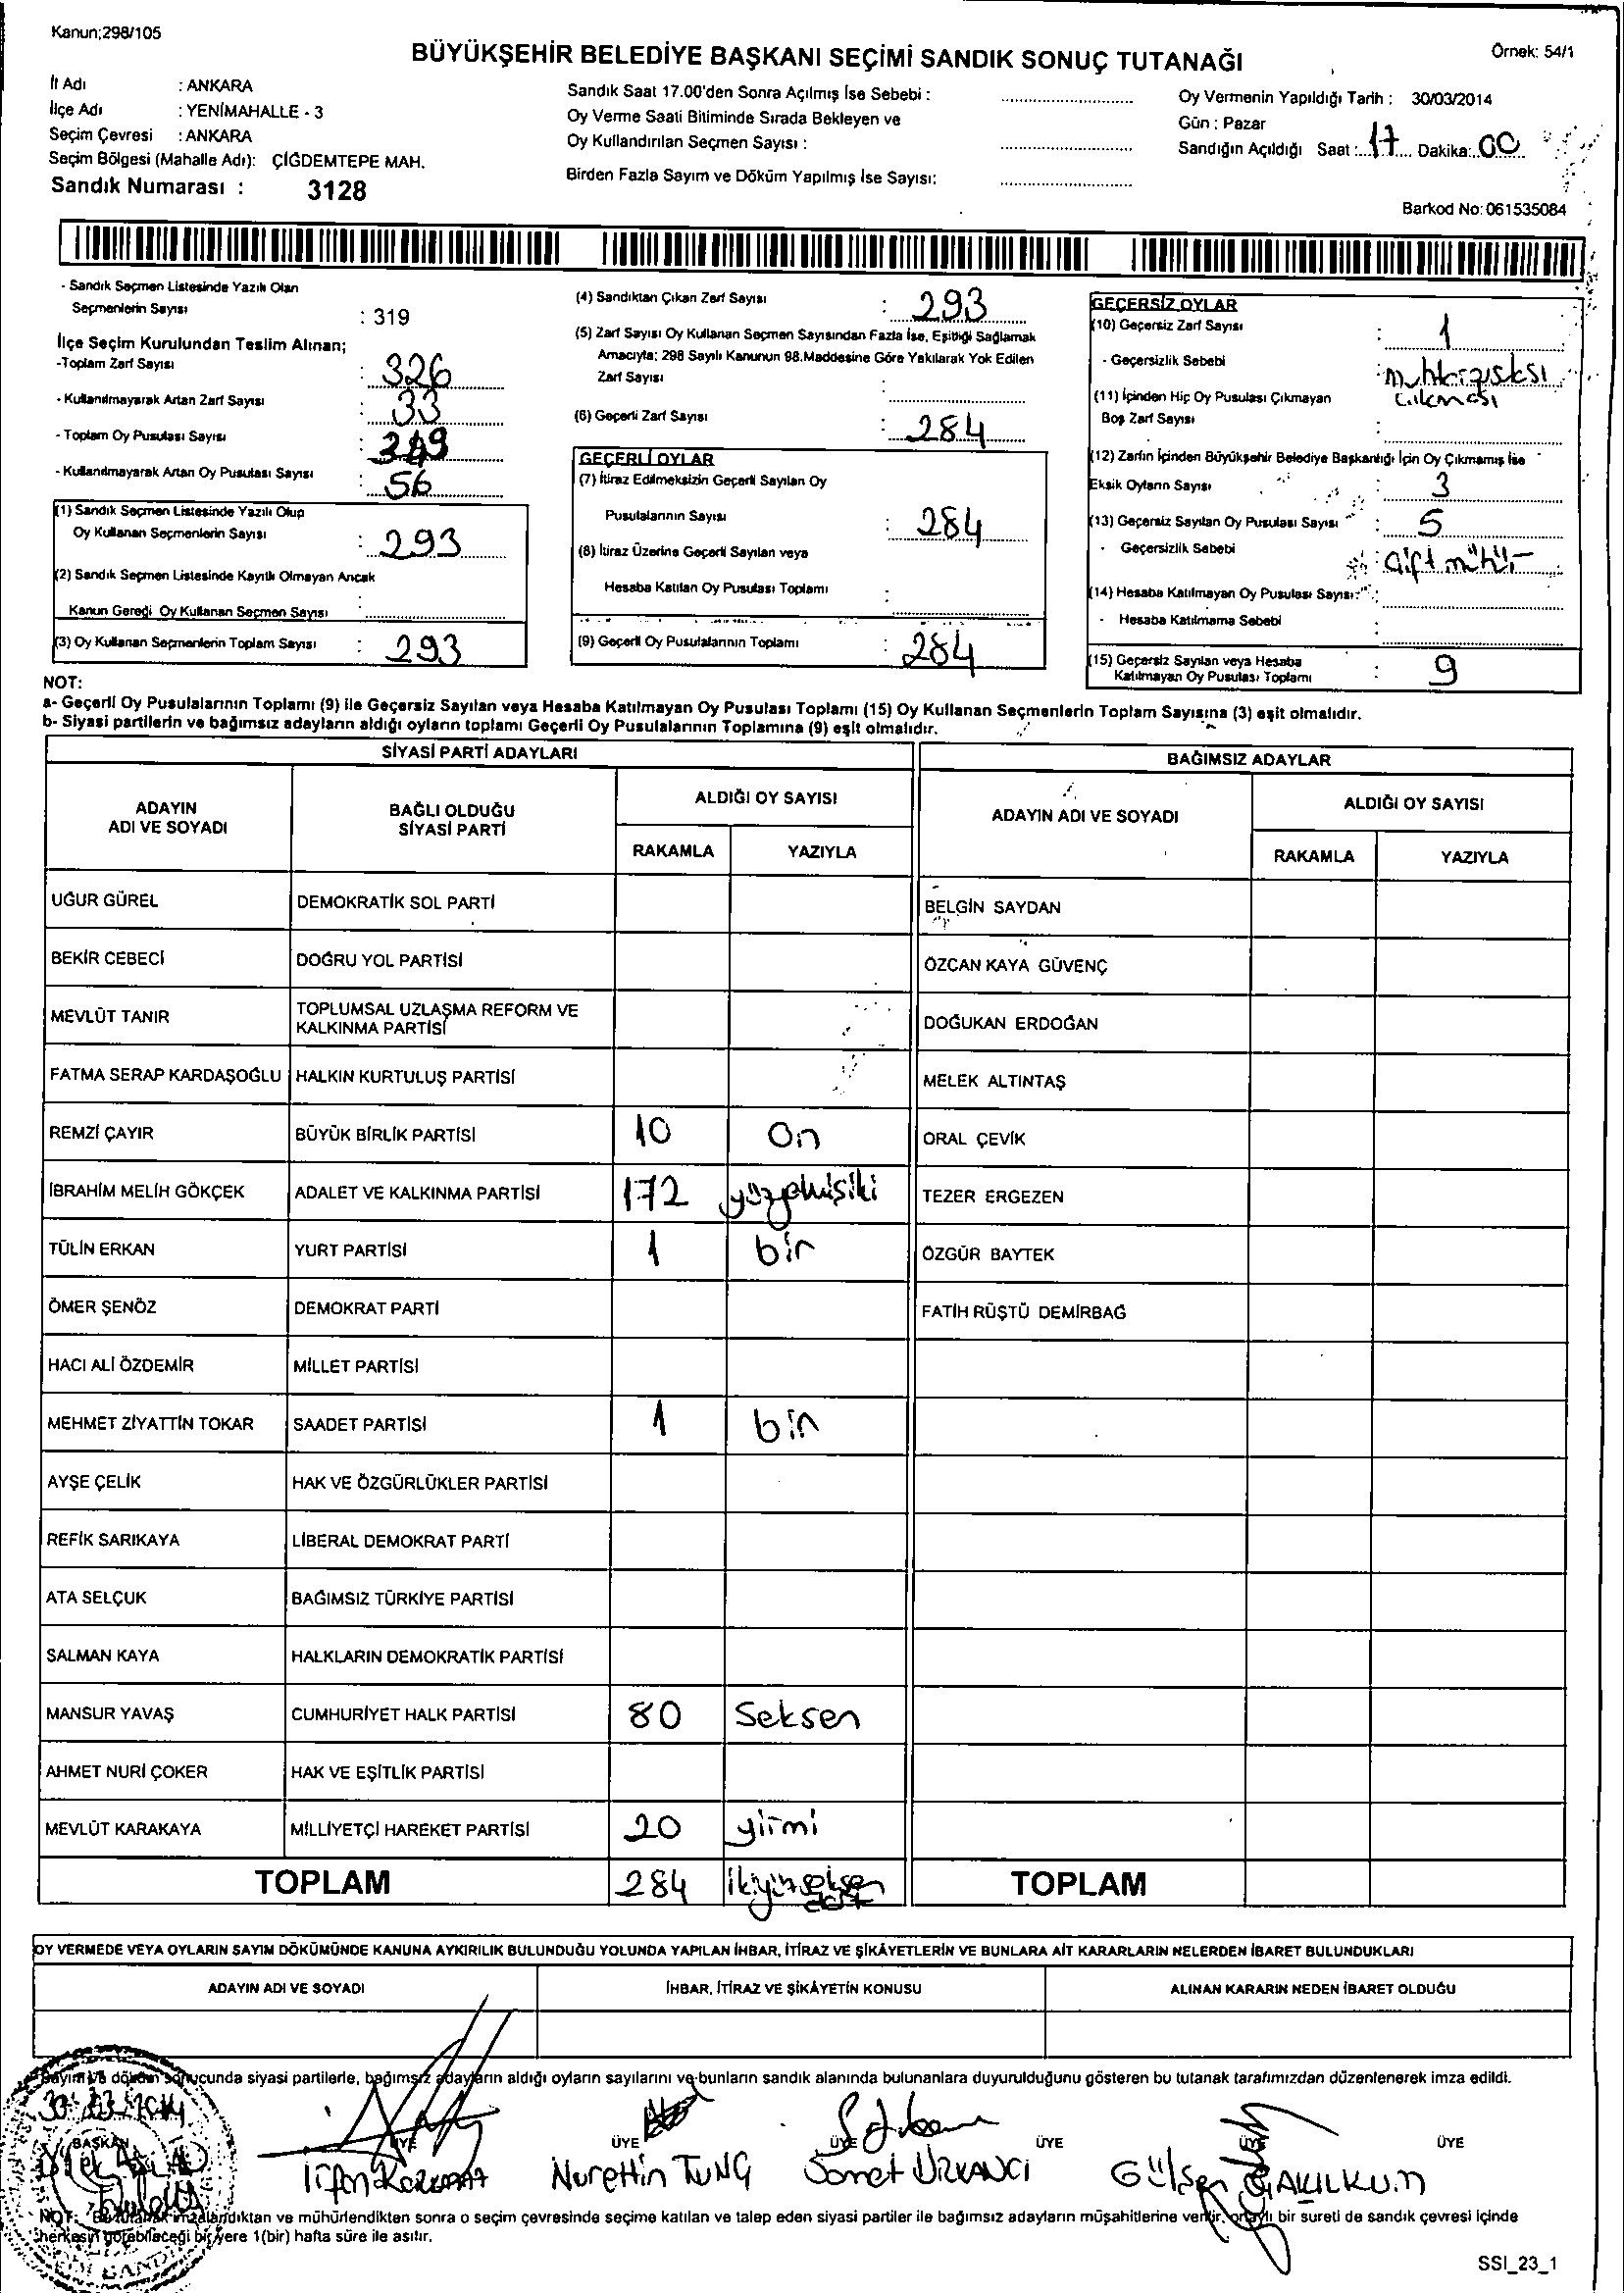 Kanun;298/105
BÜYÜKŞEHİR BELEDİYE BAŞKANI SEÇİMİ SANDIK SONUÇ TUTANAĞI
Örnek: 54/1
İl Adı : ANKARA
İlçe Adı : YENİMAHALLE - 3
Seçim Çevresi : ANKARA
Seçim Bölgesi (Mahalle Adı): ÇİĞDEMTEPE MAH.
Sandık Numarası : 3128
Sandık Saat 17.00'den Sonra Açılmış İse Sebebi :
Oy Verme Saati Bitiminde Sırada Bekleyen ve
Oy Kullandırılan Seçmen Sayısı :
Birden Fazla Sayım ve Döküm Yapılmış İse Sayısı:
Oy Vermenin Yapıldığı Tarih : 30/03/2014
Gün : Pazar
Sandığın Açıldığı Saat : 17 Dakika: 00
Barkod No: 061535084
- Sandık Seçmen Listesinde Yazılı Olan
Seçmenlerin Sayısı : 319
İlçe Seçim Kurulundan Teslim Alınan;
-Toplam Zarf Sayısı : 326
- Kullanılmayarak Artan Zarf Sayısı : 33
- Toplam Oy Pusulası Sayısı : 349
- Kullanılmayarak Artan Oy Pusulası Sayısı : 56
(1) Sandık Seçmen Listesinde Yazılı Olup
Oy Kullanan Seçmenlerin Sayısı : 293
(2) Sandık Seçmen Listesinde Kayıtlı Olmayan Ancak
Kanun Gereği Oy Kullanan Seçmen Sayısı :
(3) Oy Kullanan Seçmenlerin Toplam Sayısı : 293
(4) Sandıktan Çıkan Zarf Sayısı : 293
(5) Zarf Sayısı Oy Kullanan Seçmen Sayısından Fazla İse, Eşitliği Sağlamak
Amacıyla; 298 Sayılı Kanunun 98.Maddesine Göre Yakılarak Yok Edilen
Zarf Sayısı :
(6) Geçerli Zarf Sayısı : 284
GEÇERLİ OYLAR
(7) İtiraz Edilmeksizin Geçerli Sayılan Oy
Pusulalarının Sayısı : 284
(8) İtiraz Üzerine Geçerli Sayılan veya
Hesaba Katılan Oy Pusulası Toplamı :
(9) Geçerli Oy Pusulalarının Toplamı : 284
GEÇERSİZ OYLAR
(10) Geçersiz Zarf Sayısı : 1
- Geçersizlik Sebebi :
çıkması
(11) İçinden Hiç Oy Pusulası Çıkmayan
Boş Zarf Sayısı :
(12) Zarfın İçinden Büyükşehir Belediye Başkanlığı İçin Oy Çıkmamış İse
Eksik Oyların Sayısı : 3
(13) Geçersiz Sayılan Oy Pusulası Sayısı : 5
- Geçersizlik Sebebi : Çift mühür
(14) Hesaba Katılmayan Oy Pusulası Sayısı :
- Hesaba Katılmama Sebebi :
(15) Geçersiz Sayılan veya Hesaba
Katılmayan Oy Pusulası Toplamı : 9
NOT:
a- Geçerli Oy Pusulalarının Toplamı (9) ile Geçersiz Sayılan veya Hesaba Katılmayan Oy Pusulası Toplamı (15) Oy Kullanan Seçmenlerin Toplam Sayısına (3) eşit olmalıdır.
b- Siyasi partilerin ve bağımsız adayların aldığı oyların toplamı Geçerli Oy Pusulalarının Toplamına (9) eşit olmalıdır.
SİYASİ PARTİ ADAYLARI
ADAYIN
ADI VE SOYADI
BAĞLI OLDUĞU
SİYASİ PARTİ
ALDIĞI OY SAYISI
RAKAMLA YAZIYLA
UĞUR GÜREL DEMOKRATİK SOL PARTİ
BEKİR CEBECİ DOĞRU YOL PARTİSİ
MEVLÜT TANIR TOPLUMSAL UZLAŞMA REFORM VE
KALKINMA PARTİSİ
FATMA SERAP KARDAŞOĞLU HALKIN KURTULUŞ PARTİSİ
REMZİ ÇAYIR BÜYÜK BİRLİK PARTİSİ 10 On
İBRAHİM MELİH GÖKÇEK ADALET VE KALKINMA PARTİSİ 172
TÜLİN ERKAN YURT PARTİSİ 1 bir
ÖMER ŞENÖZ DEMOKRAT PARTİ
HACI ALİ ÖZDEMİR MİLLET PARTİSİ
MEHMET ZİYATTİN TOKAR SAADET PARTİSİ 1 bir
AYŞE ÇELİK HAK VE ÖZGÜRLÜKLER PARTİSİ
REFİK SARIKAYA LİBERAL DEMOKRAT PARTİ
ATA SELÇUK BAĞIMSIZ TÜRKİYE PARTİSİ
SALMAN KAYA HALKLARIN DEMOKRATİK PARTİSİ
MANSUR YAVAŞ CUMHURİYET HALK PARTİSİ 80 Seksen
AHMET NURİ ÇOKER HAK VE EŞİTLİK PARTİSİ
MEVLÜT KARAKAYA MİLLİYETÇİ HAREKET PARTİSİ 20 yirmi
TOPLAM 284 ikiyüzseksen
dört
BAĞIMSIZ ADAYLAR
ADAYIN ADI VE SOYADI
ALDIĞI OY SAYISI
RAKAMLA YAZIYLA
BELGİN SAYDAN
ÖZCAN KAYA GÜVENÇ
DOĞUKAN ERDOĞAN
MELEK ALTINTAŞ
ORAL ÇEVİK
TEZER ERGEZEN
ÖZGÜR BAYTEK
FATİH RÜŞTÜ DEMİRBAĞ
TOPLAM
OY VERMEDE VEYA OYLARIN SAYIM DÖKÜMÜNDE KANUNA AYKIRILIK BULUNDUĞU YOLUNDA YAPILAN İHBAR, İTİRAZ VE ŞİKÂYETLERİN VE BUNLARA AİT KARARLARIN NELERDEN İBARET BULUNDUKLARI
ADAYIN ADI VE SOYADI İHBAR, İTİRAZ VE ŞİKÂYETİN KONUSU ALINAN KARARIN NEDEN İBARET OLDUĞU
Sayım ve döküm sonucunda siyasi partilerle, bağımsız adayların aldığı oyların sayılarını ve bunların sandık alanında bulunanlara duyurulduğunu gösteren bu tutanak tarafımızdan düzenlenerek imza edildi.
30.03.2014
BAŞKAN ÜYE ÜYE ÜYE ÜYE ÜYE ÜYE
Nurettin TUNÇ Samet Gülşen
NOT: Bu tutanak imzalandıktan ve mühürlendikten sonra o seçim çevresinde seçime katılan ve talep eden siyasi partiler ile bağımsız adayların müşahitlerine verilir, onaylı bir sureti de sandık çevresi içinde
herkesin görebileceği bir yere 1(bir) hafta süre ile asılır.
SSI_23_1